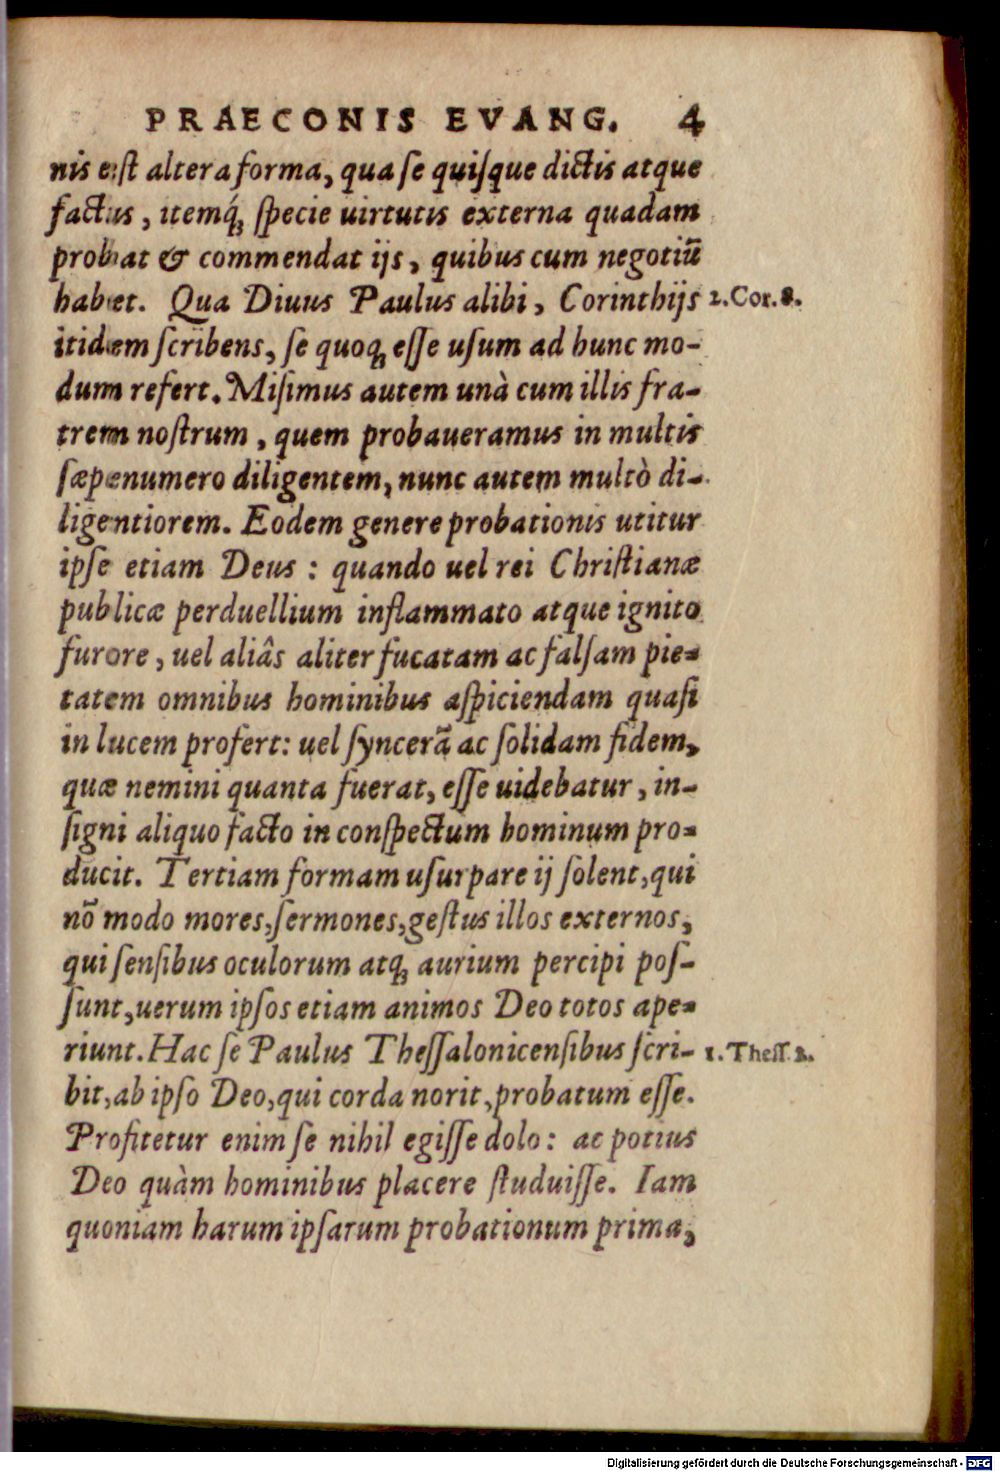 PRAECONIS EVANG. 4
nis est altera forma, qua se quisque dictis atque
factis, itemq́; specie uirtutis externa quadam
probat & commendat ijs, quibus cum negotiũ
habet. Qua Diuus Paulus alibi, Corinthijs 2. Cor. 8.
itidem scribens, se quoq; esse usum ad hunc mo-
dum refert. Misimus autem unà cum illis fra-
trem nostrum, quem probaueramus in multis
sæpenumero diligentem, nunc autem multò di-
ligentiorem. Eodem genere probationis utitur
ipse etiam Deus : quando uel rei Christianæ
publicæ perduellium inflammato atque ignito
furore, uel aliâs aliter fucatam ac falsam pie-
tatem omnibus hominibus aspiciendam quasi
in lucem profert: uel syncerã ac solidam fidem,
quæ nemini quanta fuerat, esse uidebatur, in-
signi aliquo facto in conspectum hominum pro-
ducit. Tertiam formam usurpare ij solent, qui
nõ modo mores, sermones, gestus illos externos,
qui sensibus oculorum atq; aurium percipi pos-
sunt, uerum ipsos etiam animos Deo totos ape-
riunt. Hac se Paulus Thessalonicensibus scri- 1. Thess. 2.
bit, ab ipso Deo, qui corda norit, probatum esse.
Profitetur enim se nihil egisse dolo : ac potius
Deo quàm hominibus placere studuisse. Iam
quoniam harum ipsarum probationum prima,
Digitalisierung gefördert durch die Deutsche Forschungsgemeinschaft - DFG